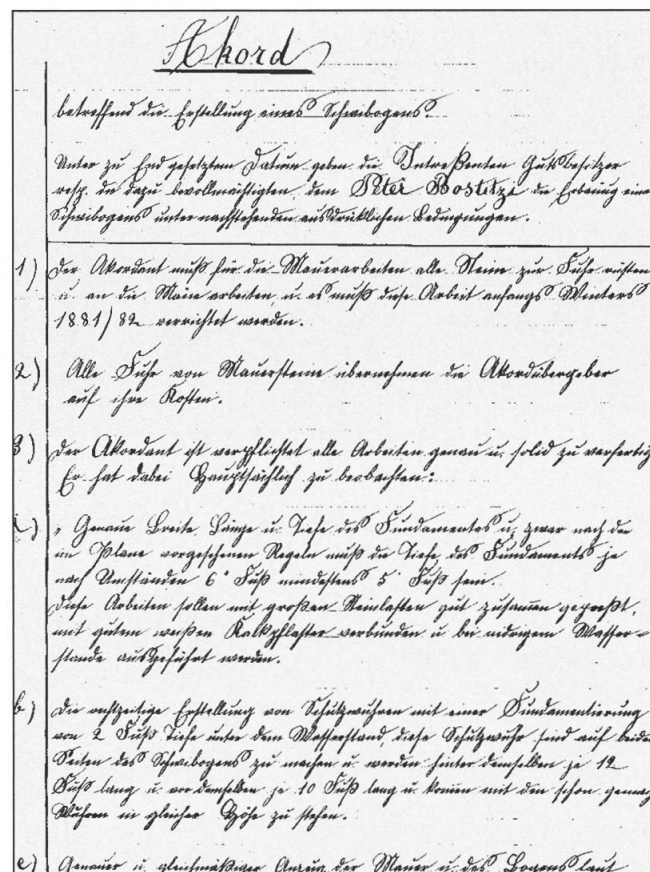 Akord
betreffend die Erstellung eines Schwibogens.
Unter zu End gesetztem Datum geben die Intreßenten Gutsbesitzer
resp. die dazu bevollmächtigten dem Peter Bostitzi die Erbauung eines
Schwibogens unter nachstehenden ausdrücklichen Bedingungen.
1) Der Akordant muß für die Mauerarbeiten alle Stein zur Fuhr rüsten
u. an die Main arbeiten, u. es muß diese Arbeit anfangs Winters
1881/82 verrichtet werden.
2) Alle Fuhr von Mauersteine übernehmen die Akordübergeber
auf ihre Kosten.
3) Der Akordant ist verpflichtet alle Arbeiten genau u. solid zu verfertig
Er hat dabei Hauptsächlich zu beobachten:
Genaue Breite, Länge u. Tiefe des Fundamentes u. zwar nach den
im Plane vorgesehenen Regeln muß die Tiefe des Fundaments je
nach Umständen 6 Fuß mindestens 5 Fuß sein.
Diese Arbeiten sollen mit großen Steinlasten gut zusammen gepreßt,
mit gutem weißen Kalkpflaster verbunden u. bei nidrigem Wasser-
stande ausgeführt werden.
b) Die rechtzeitige Erstellung von Schutzwuhren mit einer Fundamentierung
von 2 Fuß Tiefe unter dem Wasserstand, diese Schutzwuhr sind auf beiden
Seiten des Schwibogens zu machen u. werden hinter demselben je 12
Fuß lang u. vor demselben je 10 Fuß lang u. kommen mit den schon gemach
Wuhren in gleicher Höhe zu stehen.
c) Genauer u. gleichmäßiger Anzug der Mauer u. des Bogens laut